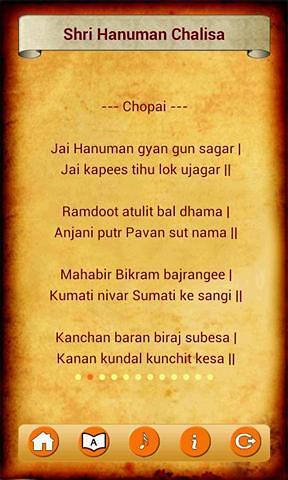 Shri Hanuman Chalisa
--- Chopai ---
Jai Hanuman gyan gun sagar |
Jai kapees tihu lok ujagar ||
Ramdoot atulit bal dhama |
Anjani putr Pavan sut nama ||
Mahabir Bikram bajrangee |
Kumati nivar Sumati ke sangi ||
Kanchan baran biraj subesa |
Kanan kundal kunchit kesa ||
A
i